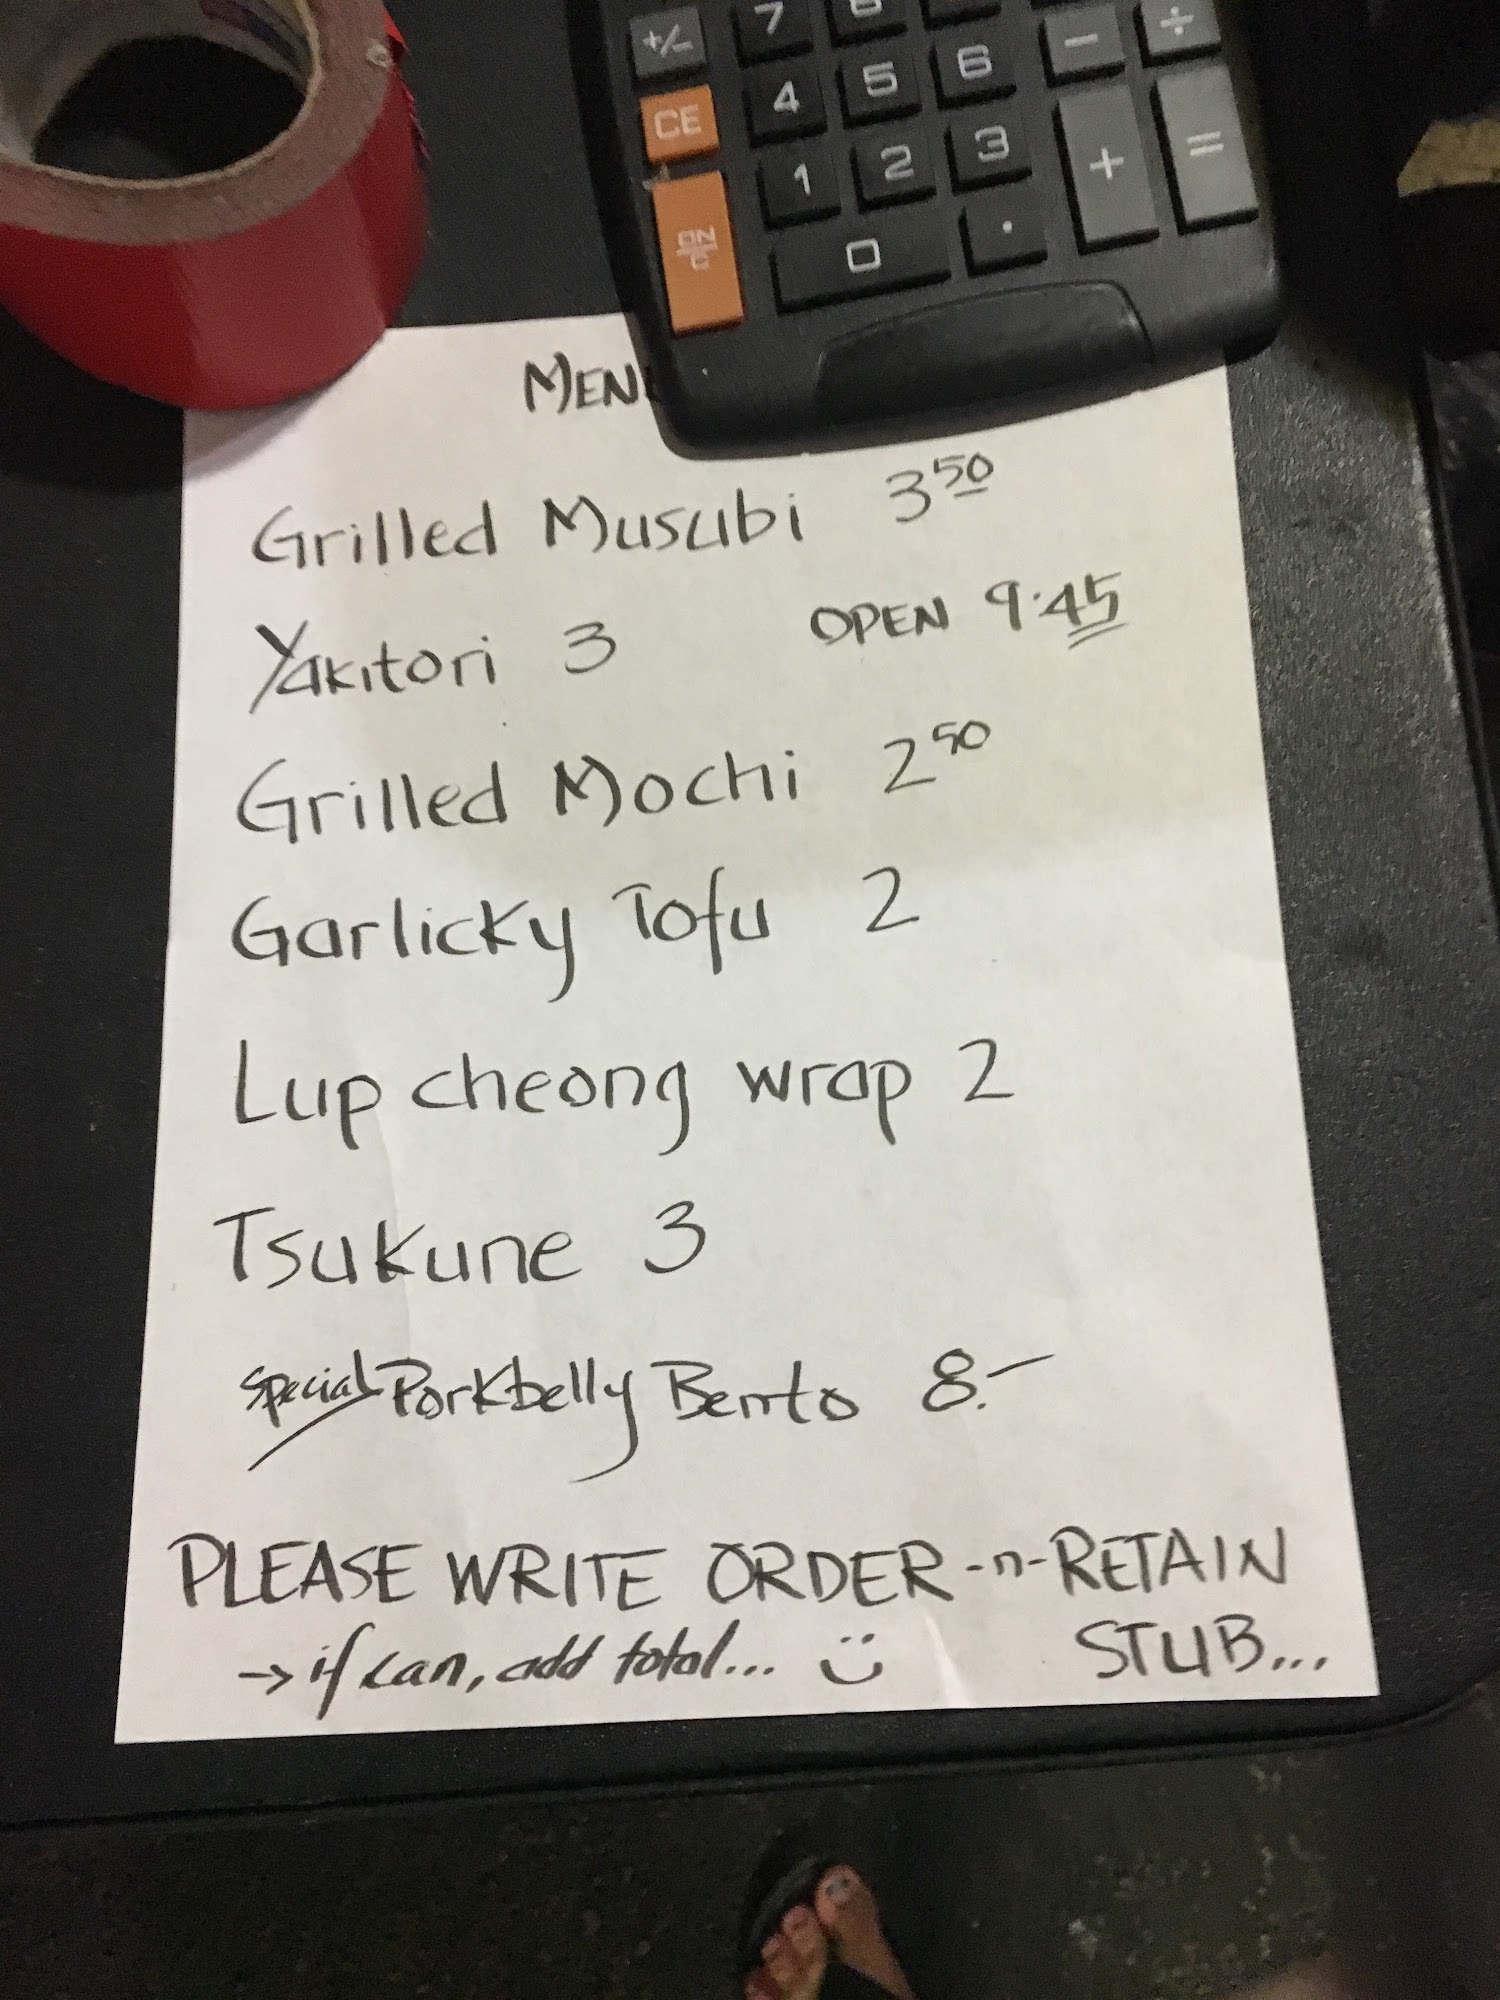 +/- 7 8
CE 4 5 6 - ÷
ON/C 1 2 3 + =
0 .
MENU
Grilled Musubi 3 50
Yakitori 3 OPEN 9:45
Grilled Mochi 2 50
Garlicky Tofu 2
Lup cheong wrap 2
Tsukune 3
Special Porkbelly Bento 8.-
PLEASE WRITE ORDER -n- RETAIN
→ if can, add total... STUB...